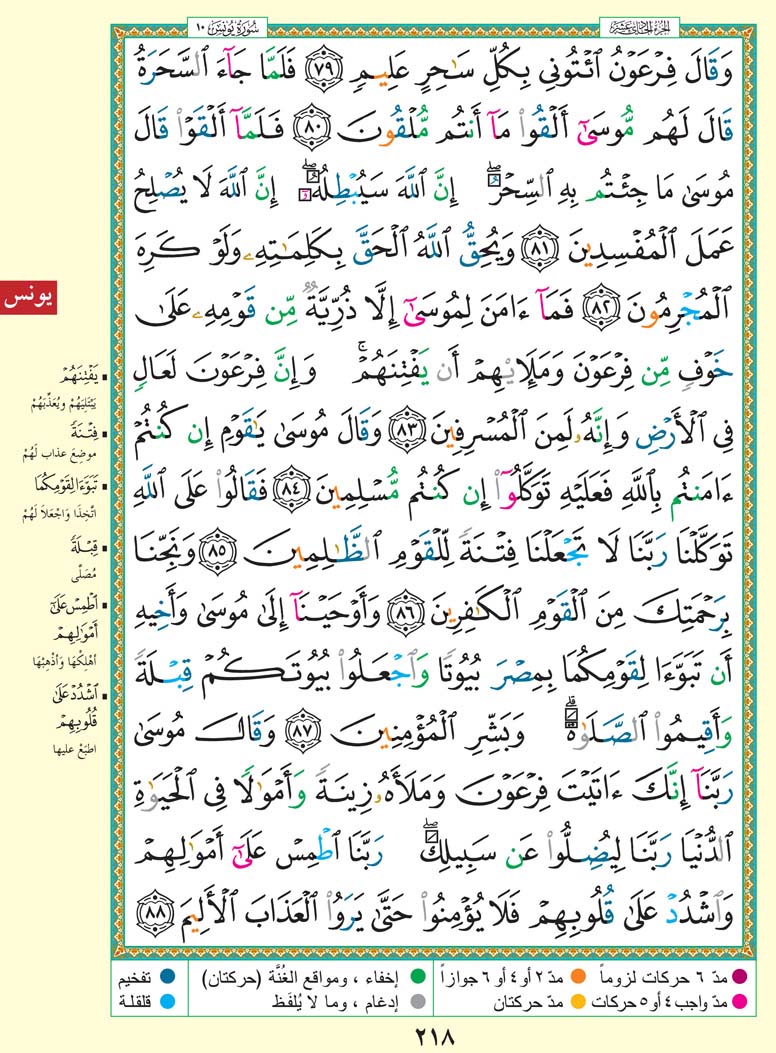 سُورَةُ يُونُسَ ١٠
الجُزْءُ الحَادِي عَشَرَ
وَقَالَ فِرْعَوْنُ ٱئْتُونِي بِكُلِّ سَـٰحِرٍ عَلِيمٍ ٧٩ فَلَمَّا جَآءَ ٱلسَّحَرَةُ
قَالَ لَهُم مُّوسَىٰٓ أَلْقُوا۟ مَآ أَنتُم مُّلْقُونَ ٨٠ فَلَمَّآ أَلْقَوْا۟ قَالَ
مُوسَىٰ مَا جِئْتُم بِهِ ٱلسِّحْرُ ۖ إِنَّ ٱللَّهَ سَيُبْطِلُهُۥٓ ۖ إِنَّ ٱللَّهَ لَا يُصْلِحُ
عَمَلَ ٱلْمُفْسِدِينَ ٨١ وَيُحِقُّ ٱللَّهُ ٱلْحَقَّ بِكَلِمَـٰتِهِۦ وَلَوْ كَرِهَ
ٱلْمُجْرِمُونَ ٨٢ فَمَآ ءَامَنَ لِمُوسَىٰٓ إِلَّا ذُرِّيَّةٌ مِّن قَوْمِهِۦ عَلَىٰ
خَوْفٍ مِّن فِرْعَوْنَ وَمَلَإِي۟هِمْ أَن يَفْتِنَهُمْ ۚ وَإِنَّ فِرْعَوْنَ لَعَالٍ
فِى ٱلْأَرْضِ وَإِنَّهُۥ لَمِنَ ٱلْمُسْرِفِينَ ٨٣ وَقَالَ مُوسَىٰ يَـٰقَوْمِ إِن كُنتُمْ
ءَامَنتُم بِٱللَّهِ فَعَلَيْهِ تَوَكَّلُوٓا۟ إِن كُنتُم مُّسْلِمِينَ ٨٤ فَقَالُوا۟ عَلَى ٱللَّهِ
تَوَكَّلْنَا رَبَّنَا لَا تَجْعَلْنَا فِتْنَةً لِّلْقَوْمِ ٱلظَّـٰلِمِينَ ٨٥ وَنَجِّنَا
بِرَحْمَتِكَ مِنَ ٱلْقَوْمِ ٱلْكَـٰفِرِينَ ٨٦ وَأَوْحَيْنَآ إِلَىٰ مُوسَىٰ وَأَخِيهِ
أَن تَبَوَّءَا لِقَوْمِكُمَا بِمِصْرَ بُيُوتًا وَٱجْعَلُوا۟ بُيُوتَكُمْ قِبْلَةً
وَأَقِيمُوا۟ ٱلصَّلَوٰةَ ۗ وَبَشِّرِ ٱلْمُؤْمِنِينَ ٨٧ وَقَالَ مُوسَىٰ
رَبَّنَآ إِنَّكَ ءَاتَيْتَ فِرْعَوْنَ وَمَلَأَهُۥ زِينَةً وَأَمْوَٰلًا فِى ٱلْحَيَوٰةِ
ٱلدُّنْيَا رَبَّنَا لِيُضِلُّوا۟ عَن سَبِيلِكَ ۖ رَبَّنَا ٱطْمِسْ عَلَىٰٓ أَمْوَٰلِهِمْ
وَٱشْدُدْ عَلَىٰ قُلُوبِهِمْ فَلَا يُؤْمِنُوا۟ حَتَّىٰ يَرَوُا۟ ٱلْعَذَابَ ٱلْأَلِيمَ ٨٨
يونس
يَفْتِنَهُمْ
يَبْتَلِيَهُمْ ويُعَذِّبَهُمْ
فِتْنَةً
موضِعَ عذاب لَهُمْ
تَبَوَّءَا لِقَوْمِكُمَا
اتَّخِذَا وَاجْعَلاَ لَهُمْ
قِبْلَةً
مُصَلًّى
ٱطْمِسْ عَلَىٰٓ
أَمْوَٰلِهِمْ
أهْلِكْهَا وَأذْهِبْهَا
ٱشْدُدْ عَلَىٰ
قُلُوبِهِمْ
اطبَعْ عليها
مدّ ٦ حركات لزوماً
مدّ ٢ أو ٤ أو ٦ جوازاً
إخفاء ، ومواقع الغُنَّة (حركتان)
تفخيم
مدّ واجب ٤ أو ٥ حركات
مدّ حركتان
إدغام ، وما لا يُلفَظ
قلقلة
٢١٨